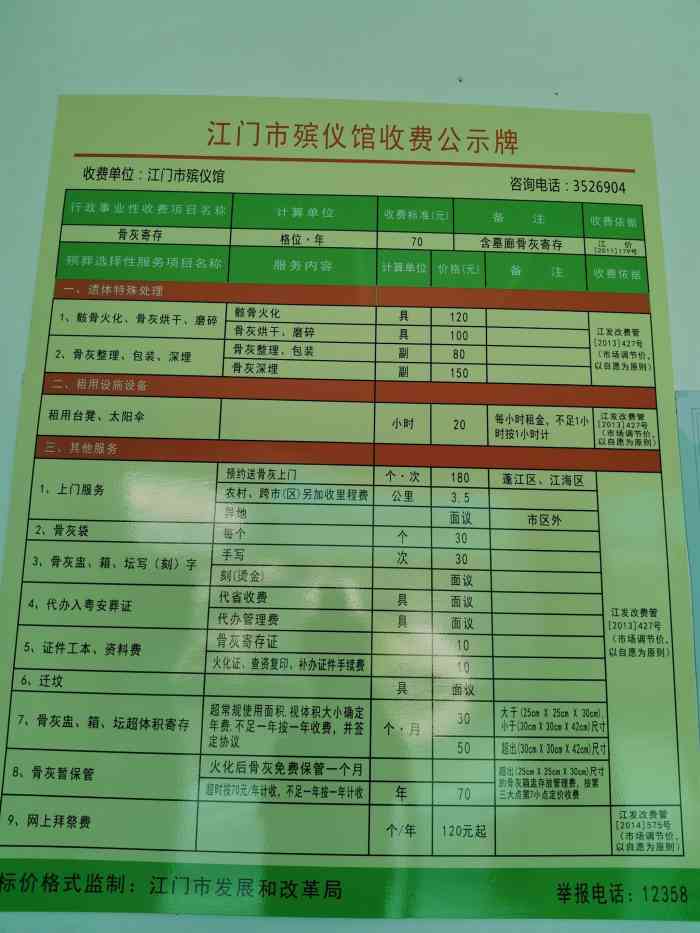 江门市殡仪馆收费公示牌
收费单位：江门市殡仪馆
咨询电话：3526904
行政事业性收费项目名称 计算单位 收费标准(元) 备 注 收费依据
骨灰寄存 格位·年 70 含墓廊骨灰寄存 江 价[2011]179号
殡葬选择性服务项目名称 服务内容 计算单位 价格(元) 备 注 收费依据
一、遗体特殊处理
1、骸骨火化、骨灰烘干、磨碎 骸骨火化 具 120
骨灰烘干、磨碎 具 100
2、骨灰整理、包装、深埋 骨灰整理、包装 副 80
骨灰深埋 副 150
江发改费管
[2013]427号
(市场调节价,
以自愿为原则)
二、租用设施设备
租用台凳、太阳伞 小时 20 每小时租金，不足1小
时按1小时计
江发改费管
[2013]427号
(市场调节价,
以自愿为原则)
三、其他服务
1、上门服务 预约送骨灰上门 个·次 180 蓬江区、江海区
农村、跨市(区)另加收里程费 公里 3.5
异地 面议 市区外
2、骨灰袋 每个 个 30
3、骨灰盅、箱、坛写（刻）字 手写 次 30
刻(烫金) 面议
4、代办入粤安葬证 代省收费 具 面议
代办管理费 具 面议
5、证件工本、资料费 骨灰寄存证 10
火化证、查资复印、补办证件手续费 10
6、迁坟 具 面议
7、骨灰盅、箱、坛超体积寄存 超常规使用面积,视体积大小确定
年费,不足一年按一年收费，并签
定协议
个·月 30 大于(25cm X 25cm X 30cm)
小于(30cm X 30cm X 42cm)尺寸
50 超出(30cm X 30cm X 42cm)尺寸
江发改费管
[2013]427号
(市场调节价,
以自愿为原则)
8、骨灰暂保管 火化后骨灰免费保管一个月
超时按70元/年计收，不足一年按一年计收 年 70
超出(25cm X 25cm X 30cm)尺寸
的骨灰箱盅存放管理费，按第
三大点第7小点定价收费
9、网上拜祭费 个/年 120元起
江发改费管
[2014]575号
(市场调节价,
以自愿为原则)
标价格式监制：江门市发展和改革局
举报电话：12358